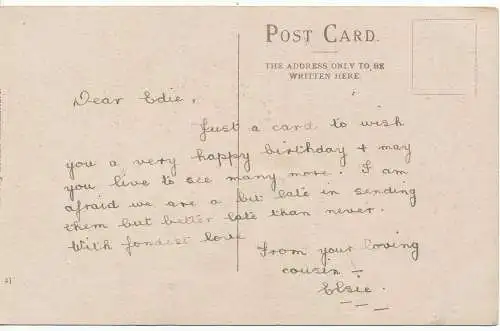 POST CARD.
THE ADDRESS ONLY TO BE
WRITTEN HERE
Dear Edie,
Just a card to wish
you a very happy birthday & may
you live to see many more. I am
afraid we are a bit late in sending
them but better late than never.
With fondest love
From your loving
cousin -
Elsie.